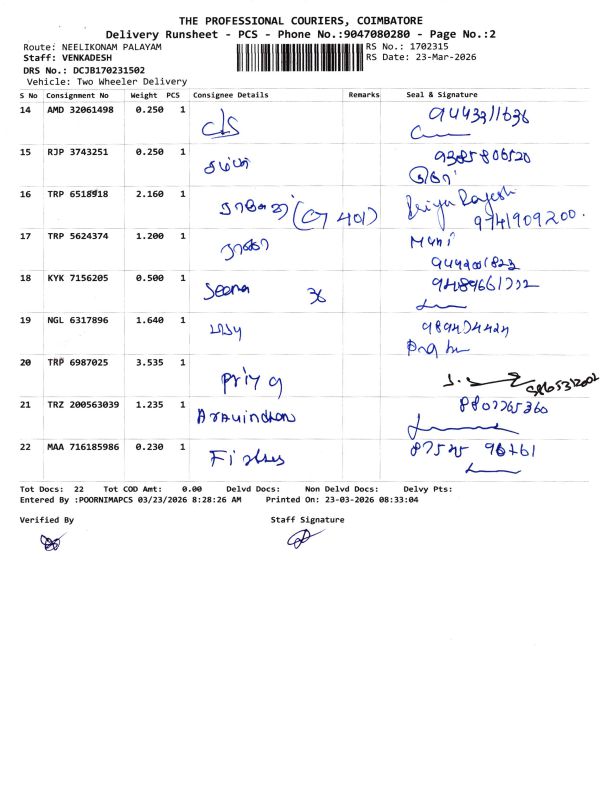 THE PROFESSIONAL COURIERS, COIMBATORE
Delivery Runsheet - PCS - Phone No.:9047080280 - Page No.:2
Route: NEELIKONAM PALAYAM RS No.: 1702315
Staff: VENKADESH RS Date: 23-Mar-2026
DRS No.: DCJB170231502
Vehicle: Two Wheeler Delivery
S No Consignment No Weight PCS Consignee Details Remarks Seal & Signature
14 AMD 32061498 0.250 1
15 RJP 3743251 0.250 1 9385806520
16 TRP 6518918 2.160 1 (C7 401) Priya Rajesh
9741909200.
17 TRP 5624374 1.200 1 Muni
18 KYK 7156205 0.500 1 Seena 36
19 NGL 6317896 1.640 1
20 TRP 6987025 3.535 1 Priya
21 TRZ 200563039 1.235 1 Aravindhan 8807765360
22 MAA 716185986 0.230 1
Tot Docs: 22 Tot COD Amt: 0.00 Delvd Docs: Non Delvd Docs: Delvy Pts:
Entered By :POORNIMAPCS 03/23/2026 8:28:26 AM Printed On: 23-03-2026 08:33:04
Verified By Staff Signature